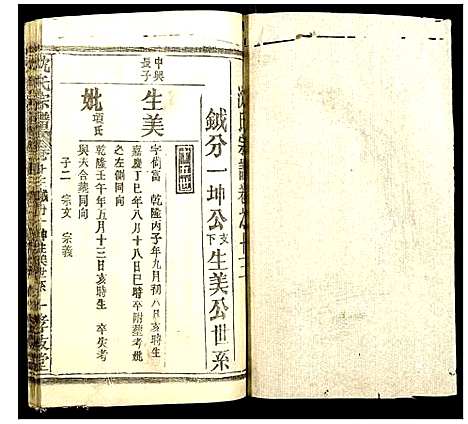 沈氏宗譜卷之十三
鉞分一坤公支下生美公世系
中興長子
生美
字尚富 乾隆丙子年九月初八日亥時生
嘉慶丁巳年八月十八日巳時卒附葬考妣
之左側同向
妣項氏
乾隆壬午年五月十三日亥時生 卒失考
與夫合墓同向
子二 宗支 宗義
沈氏宗譜
孝敬堂